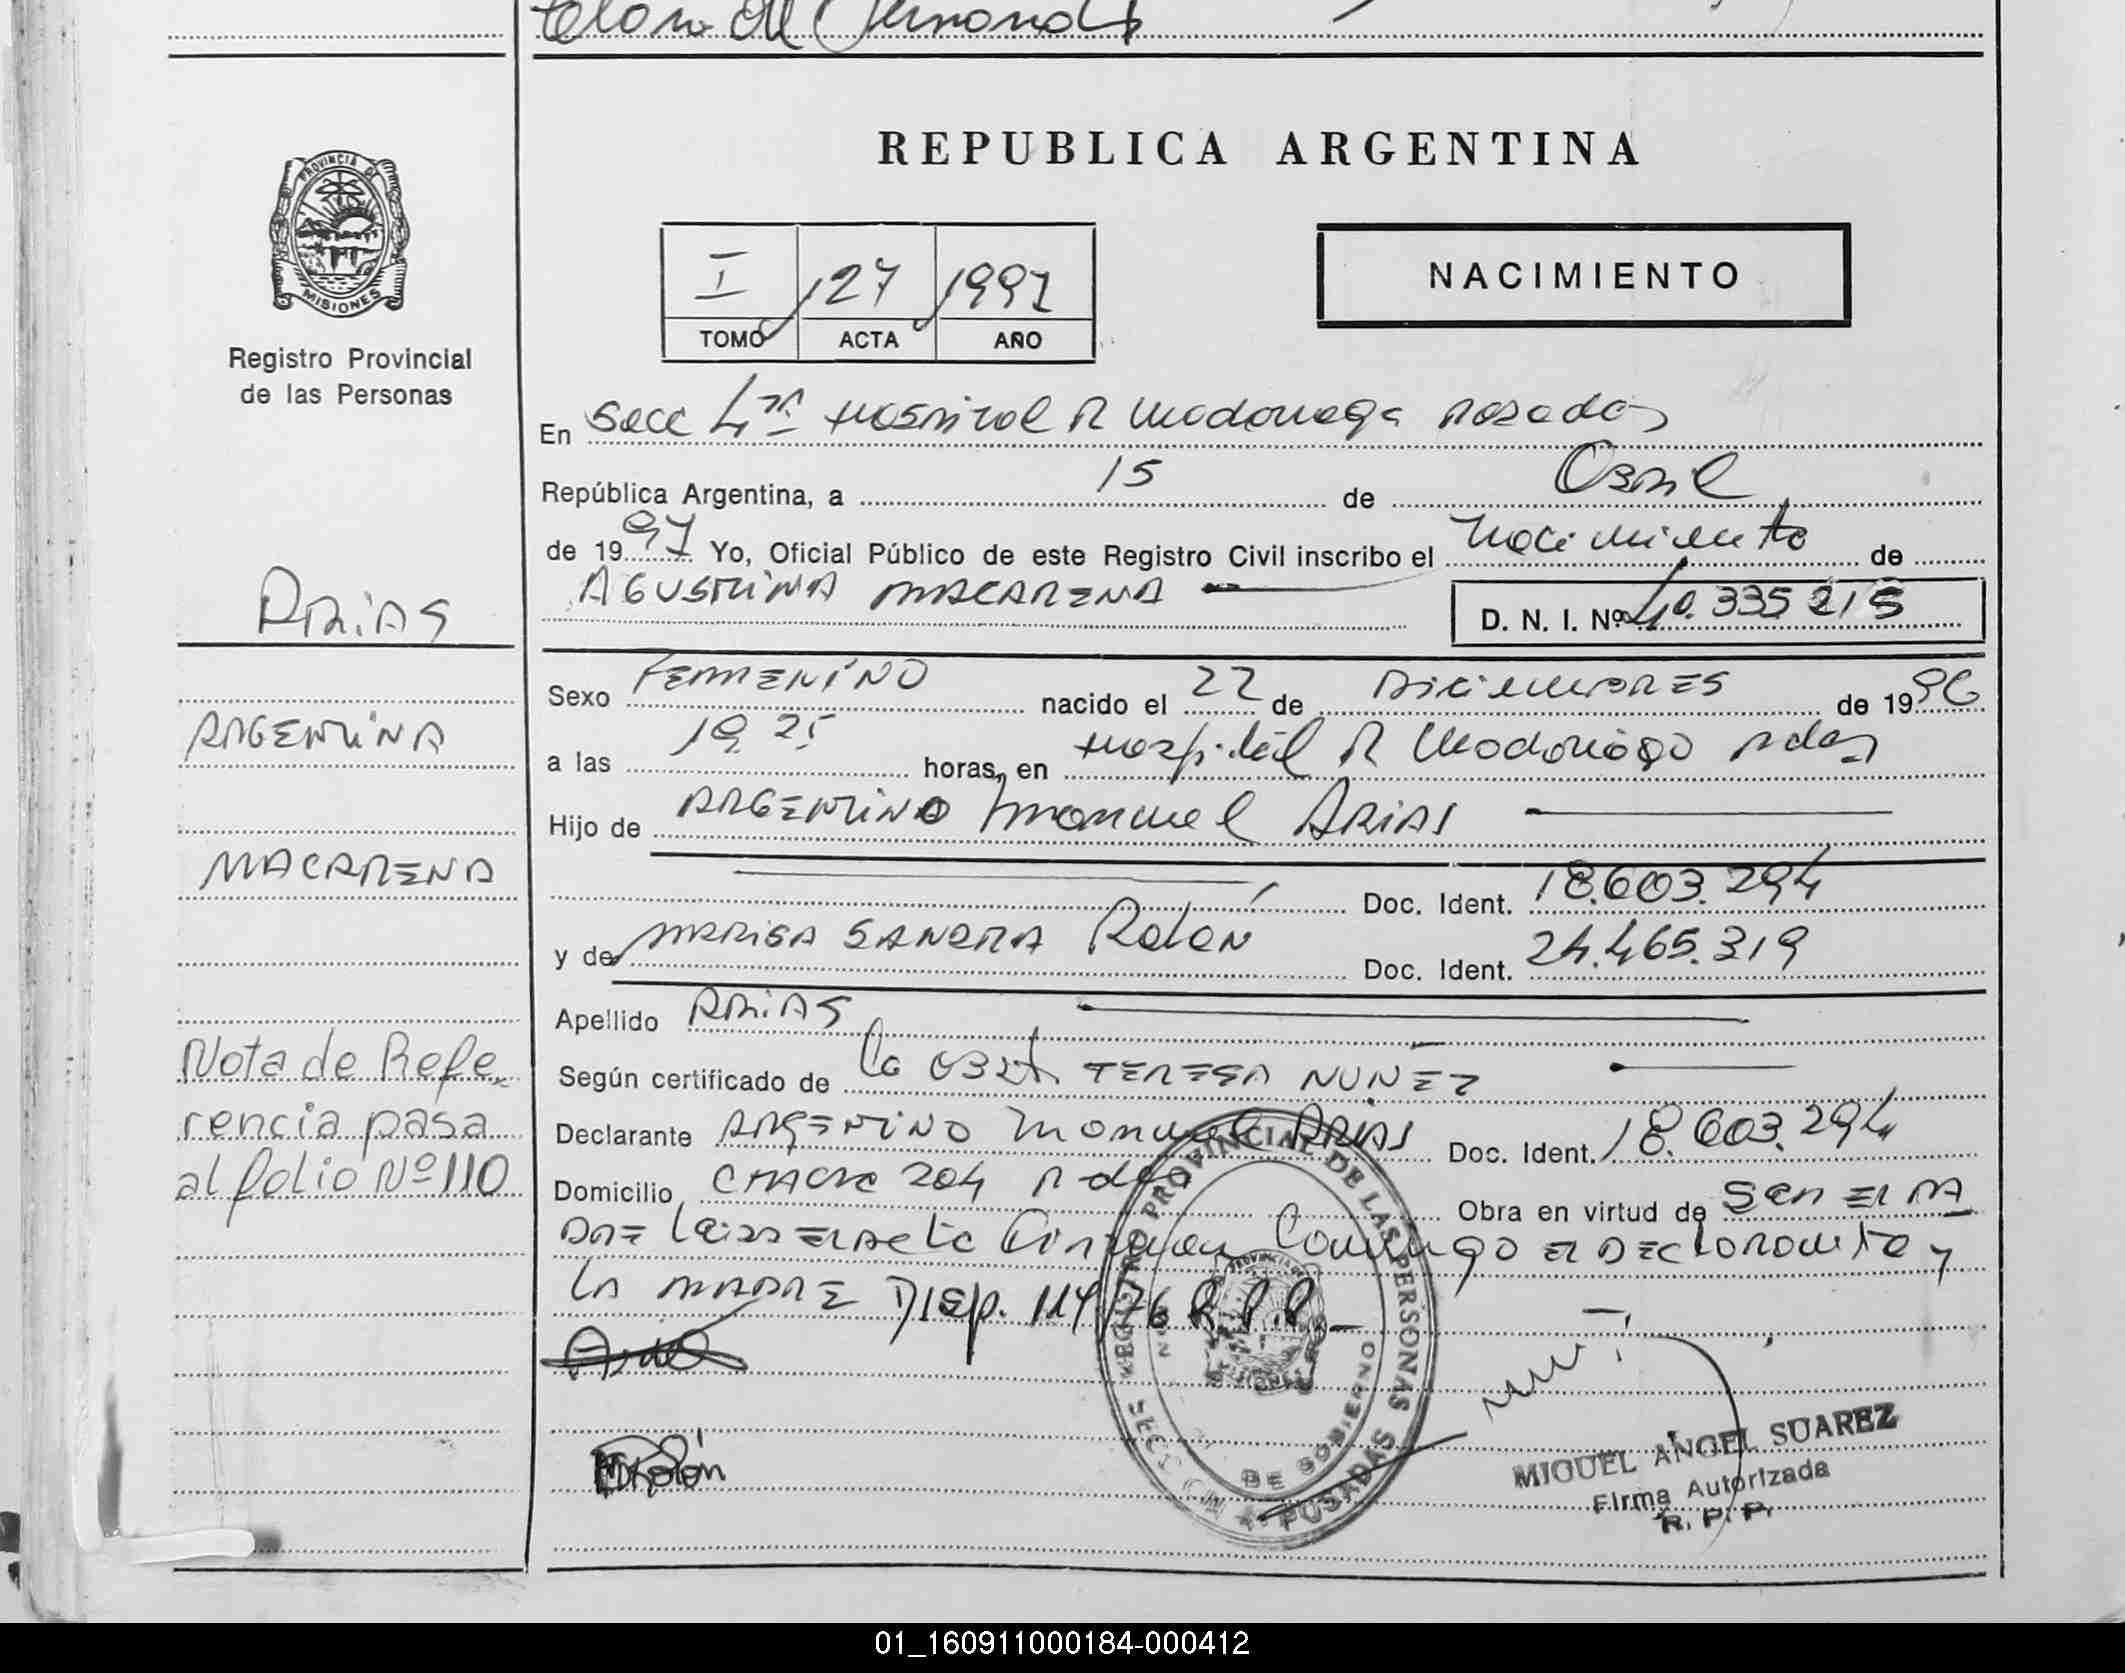 REPUBLICA ARGENTINA
PROVINCIA DE
MISIONES
Registro Provincial
de las Personas
I 127 1997
TOMO ACTA AÑO
NACIMIENTO
En Secc 4ta Hospital R Madariaga Posadas
República Argentina, a 15 de Abril
de 1997 Yo, Oficial Público de este Registro Civil inscribo el nacimiento de
AGUSTINA MACARENA
D. N. I. Nº 40.335 215
ARIAS
Sexo FEMENINO nacido el 22 de Diciembre de 1996
ARGENTINA
a las 19 25 horas, en Hospital R Madariaga Pdas
Hijo de ARGENTINO Manuel ARIAS
MACARENA
Doc. Ident. 18.603.294
y de MARISA SANDRA Rolón Doc. Ident. 24.465.319
Apellido ARIAS
Nota de Refe-
rencia pasa
al folio Nº 110
Según certificado de la Obst. TERESA NUÑEZ
Declarante ARGENTINO Manuel ARIAS Doc. Ident. 18.603.294
Domicilio CHACRA 204 Pdas Obra en virtud de SER EL PA
DRE Conmigo EL DECLARANTE y
LA MADRE Disp. 114/76 R.P.P.
Rolón
REGISTRO PROVINCIAL DE LAS PERSONAS
DE GOBIERNO
POSADAS
MIGUEL ANGEL SUAREZ
Firma Autorizada
R. P. P.
01_160911000184-000412